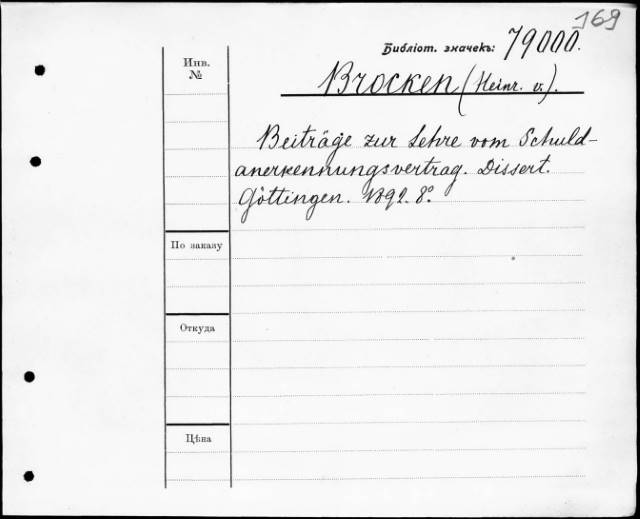 169
Библіот. значекъ: 79000.
Инв.
№
Brocken (Heinr. v.).
Beiträge zur Lehre vom Schuld-
anerkennungsvertrag. Dissert.
Göttingen. 1892. 8°.
По заказу
Откуда
Цѣна